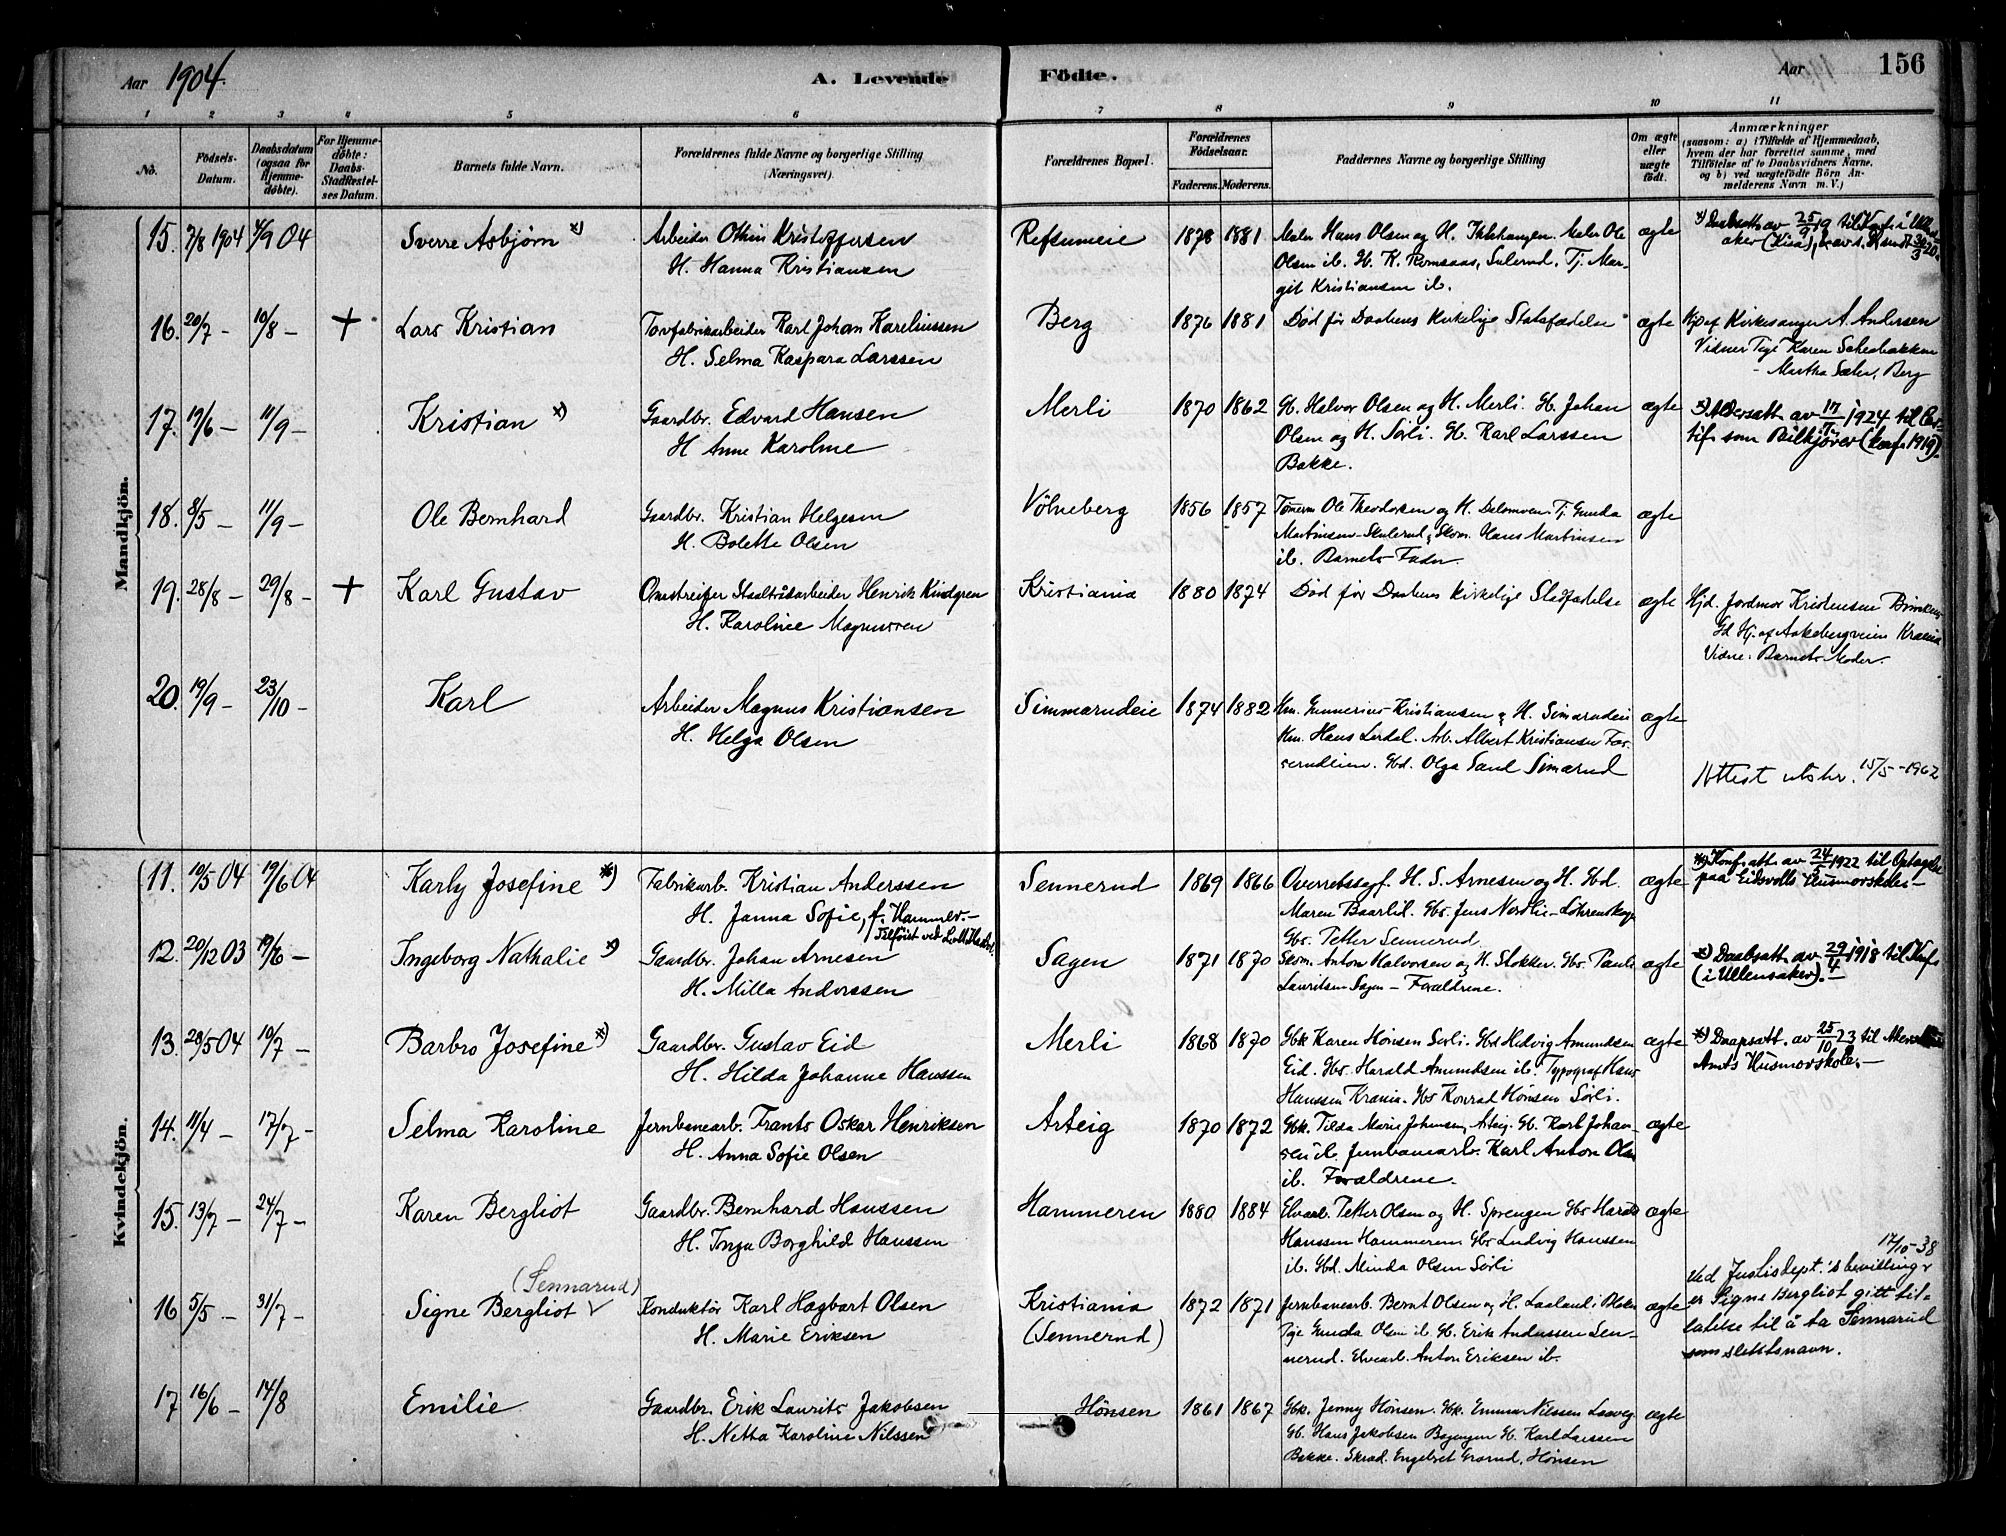 Aar 1904. A. Levende Födte. Aar 156
1 2 3 4 5 6 7 8 9 10 11
No.
Födsels-Datum.
Daabsdatum (ogsaa for Hjemmedöbte).
For Hjemmedöbte: Daabs-Stadfæstelses Datum.
Barnets fulde Navn.
Forældrenes fulde Navne og borgerlige Stilling (Næringsvei).
Forældrenes Bopæl.
Forældrenes Födselsaar. Faderens. Moderens.
Faddernes Navne og borgerlige Stilling
Om ægte eller uægte födt.
Anmærkninger
(saasom: a) i Tilfælde af Hjemmedaab,
hvem der har forrettet samme, med
Tilföielse af to Daabsvidners Navne,
og b) ved uægtefödte Börn Anmelderens Navn m. V.)
Mandkjön.
15. 7/8 1904 4/9 04 Sverre Asbjørn *) Arbeider Othin Kristoffersen
H. Hanna Kristiansen
Refsumeie 1878 1881 Maler Hans Olsen og H. Maler Ole
Olsen ib. G. K. Romsaas, Tj. Mar-
git Kristiansen ib.
ægte *) Daabsatt. av 25/9 19 til Konf. i Ullens-
aker
16. 20/7 – 10/8 – + Lars Kristian Torvfabrikarbeider Karl Johan Kareliussen
H. Selma Kaspara Larssen
Berg 1876 1881 Død før Daabens kirkelige Stadfæstelse ægte Hjd. af Kirkesanger A. Andersen
Vidner Pige Karen
– Martha Sæter, Berg
17. 19/6 – 11/9 – Kristian *) Gaardbr. Edvard Hansen
H. Anne Karoline
Merli 1870 1862 Gb. Halvor Olsen og H. Merli. Gb. Johan
Olsen og H. Sørli. Gb. Karl Larssen
Bakke.
ægte *) Aldersatt. av 17/ 1924 til Cer-
tif. som Bilkjører (konf. 1919).
18. 8/5 – 11/9 – Ole Bernhard Gaardbr. Kristian Helgesen
H. Bolette Olsen
Vølneberg 1856 1857 Tømmerm Ole Theodorsen og H. Tj. Gunda
Martinsen Skulerud, Skom. Hans Martinsen
ib. Barnets Fader.
ægte
19. 28/8 – 29/8 – + Karl Gustav Omstreifer Staaltrådarbeider Henrik
H. Karoline Magnussen
Kristiania 1880 1874 Død før Daabens kirkelige Stadfæstelse ægte Hjd. Jordmor Kristensen
Vidne: Barnets Moder.
20. 19/9 – 23/10 – Karl Arbeider Magnus Kristiansen
H. Helga Olsen
Simmarudeie 1874 1882 Hm. Gunnerius Kristiansen & H. Simarudeie
Hm. Hans Lerdal. Arb. Albert Kristiansen
Gbd. Olga Sand Simarud
ægte
Attest utskr. 15/5 -1962
Kvindekjön.
11. 19/5 04 19/6 04 Karly Josefine *) Fabrikarb. Kristian Anderssen
H. Janna Sofie, f. Hammer. –
Sennerud 1869 1866 Overretssagf. H. S. Arnesen og H. Gbd.
Maren Baarlid. Gbs. Jens Nordlie – Lørenskog
Gbs. Petter Sennerud
ægte *) Konf. att. av 24/ 1922 til Optagelse
paa Eidsvolls Husmorskole. –
12. 20/12 03 19/6 – Ingeborg Nathalie *) Gaardbr. Johan Arnesen
H. Milla Anderssen
Sagen 1871 1870 Skom. Anton Halvorsen og H. Stokker. Gbs. Paul
Lauritsen Sagen – Forældrene.
ægte *) Daabsatt. av 29/4 1918 til Konf.
(i Ullensaker). –
13. 28/5 04 10/7 – Barbro Josefine *) Gaardbr. Gustav Eid
H. Hilda Johanne Hanssen
Merli 1868 1870 Gbk. Karen Hønsen Sørli. Gbd Hedvig Amundsen
Eid. Gbs. Harald Amundsen ib. Typograf Hans
Hanssen Krania. Gbs Konrad Hønsen Sørli.
ægte *) Daapsatt. av 25/10 23 til
Amts Husmorskole. –
14. 11/4 – 17/7 – Selma Karoline Jernbanearb. Frants Oskar Henriksen
H. Anna Sofie Olsen
Arteig 1870 1872 Gbk. Tilda Marie Johansen, Arteig. Gb. Karl Johan-
sen ib. Jernbanearb. Karl Anton Olsen
ib. Forældrene.
ægte
15. 13/7 – 24/7 – Karen Bergliot Gaardbr. Bernhard Hanssen
H. Inga Borghild Hanssen
Hammeren 1880 1884 Elvearb. Petter Olsen og H. Sprengen Gbs Harald
Hanssen Hammeren Gbs Ludvig Hanssen
ib. Gbd. Minda Olsen Sørli
ægte
(Sennarud)
16 5/5 – 31/7 – Signe Bergliot Konduktør Karl Hagbart Olsen
H. Marie Eriksen
Kristiania
(Sennerud)
1872 1871 Jernbanearb. Bernt Olsen og H. Laaland i
Pige Gunda Olsen ib. Gb. Erik Anderssen Sen-
nerud. Elvearb. Anton Eriksen ib.
ægte 17/10 -38
Ved Justisdept.'s bevilling
er Signe Bergliot gitt til-
latelse til å ta Sennarud
som slektsnavn.
17 16/6 – 14/8 Emilie Gaardbr. Erik Laurits Jakobsen
H. Netta Karoline Nilssen
Hønsen 1861 1867 Gbk. Jenny Hønsen. Gbk. Emma Nilssen
Gb. Hans Jakobsen Gb. Karl Larssen
Bakke. Skræd. Engebret Grorud, Hønsen
ægte